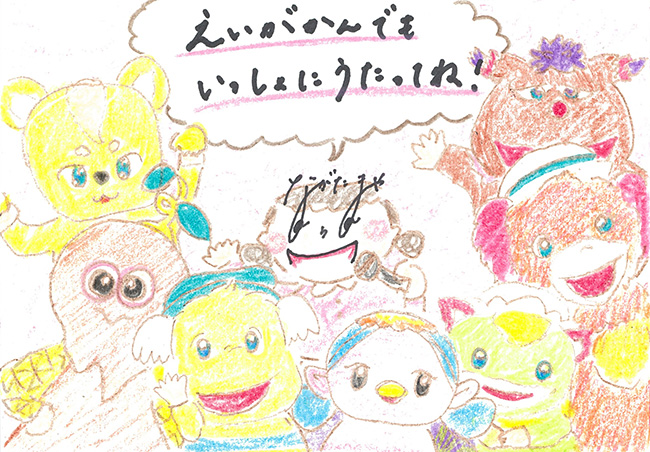 えいがかんでも
いっしょにうたってね!
ながたまや